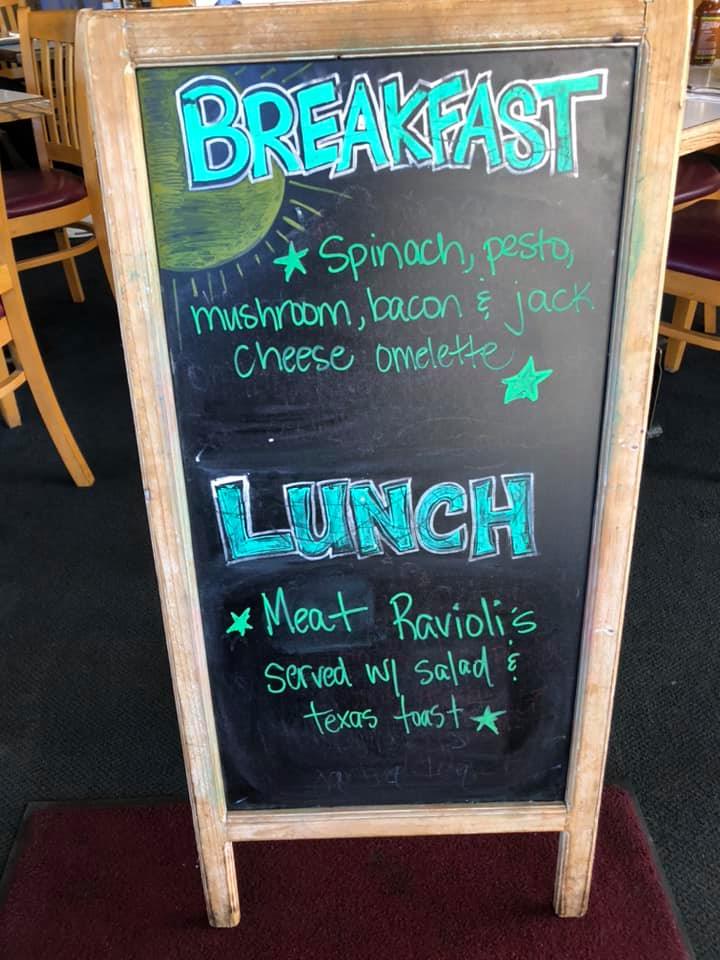 BREAKFAST
Spinach, pesto,
mushroom, bacon & jack
cheese omelette
LUNCH
Meat Ravioli's
served w/ salad &
texas toast